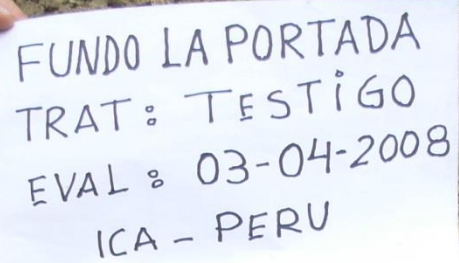 FUNDO LA PORTADA
TRAT: TESTiGO
EVAL: 03-04-2008
ICA - PERU